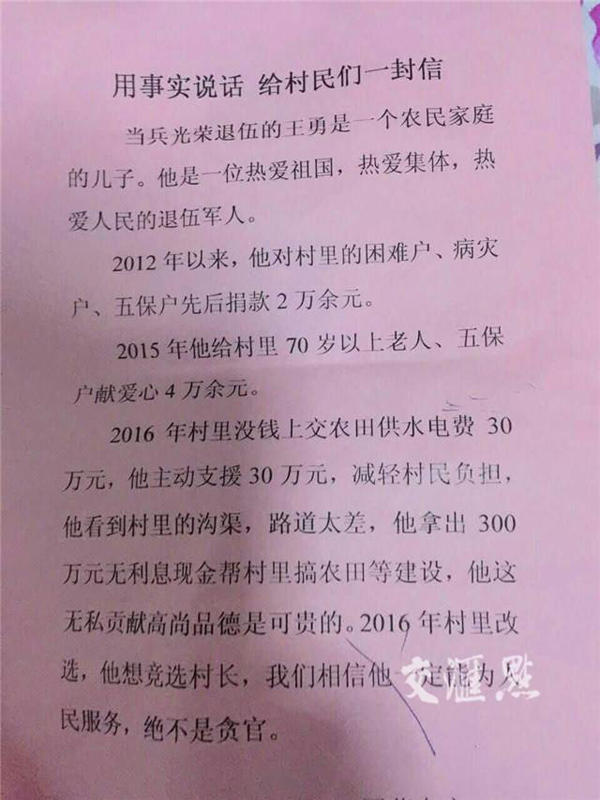 用事实说话 给村民们一封信
当兵光荣退伍的王勇是一个农民家庭
的儿子。他是一位热爱祖国，热爱集体，热
爱人民的退伍军人。
2012 年以来，他对村里的困难户、病灾
户、五保户先后捐款 2 万余元。
2015 年他给村里 70 岁以上老人、五保
户献爱心 4 万余元。
2016 年村里没钱上交农田供水电费 30
万元，他主动支援 30 万元，减轻村民负担，
他看到村里的沟渠，路道太差，他拿出 300
万元无利息现金帮村里搞农田等建设，他这
无私贡献高尚品德是可贵的。2016 年村里改
选，他想竞选村长，我们相信他 定能为人
民服务，绝不是贪官。
交汇点